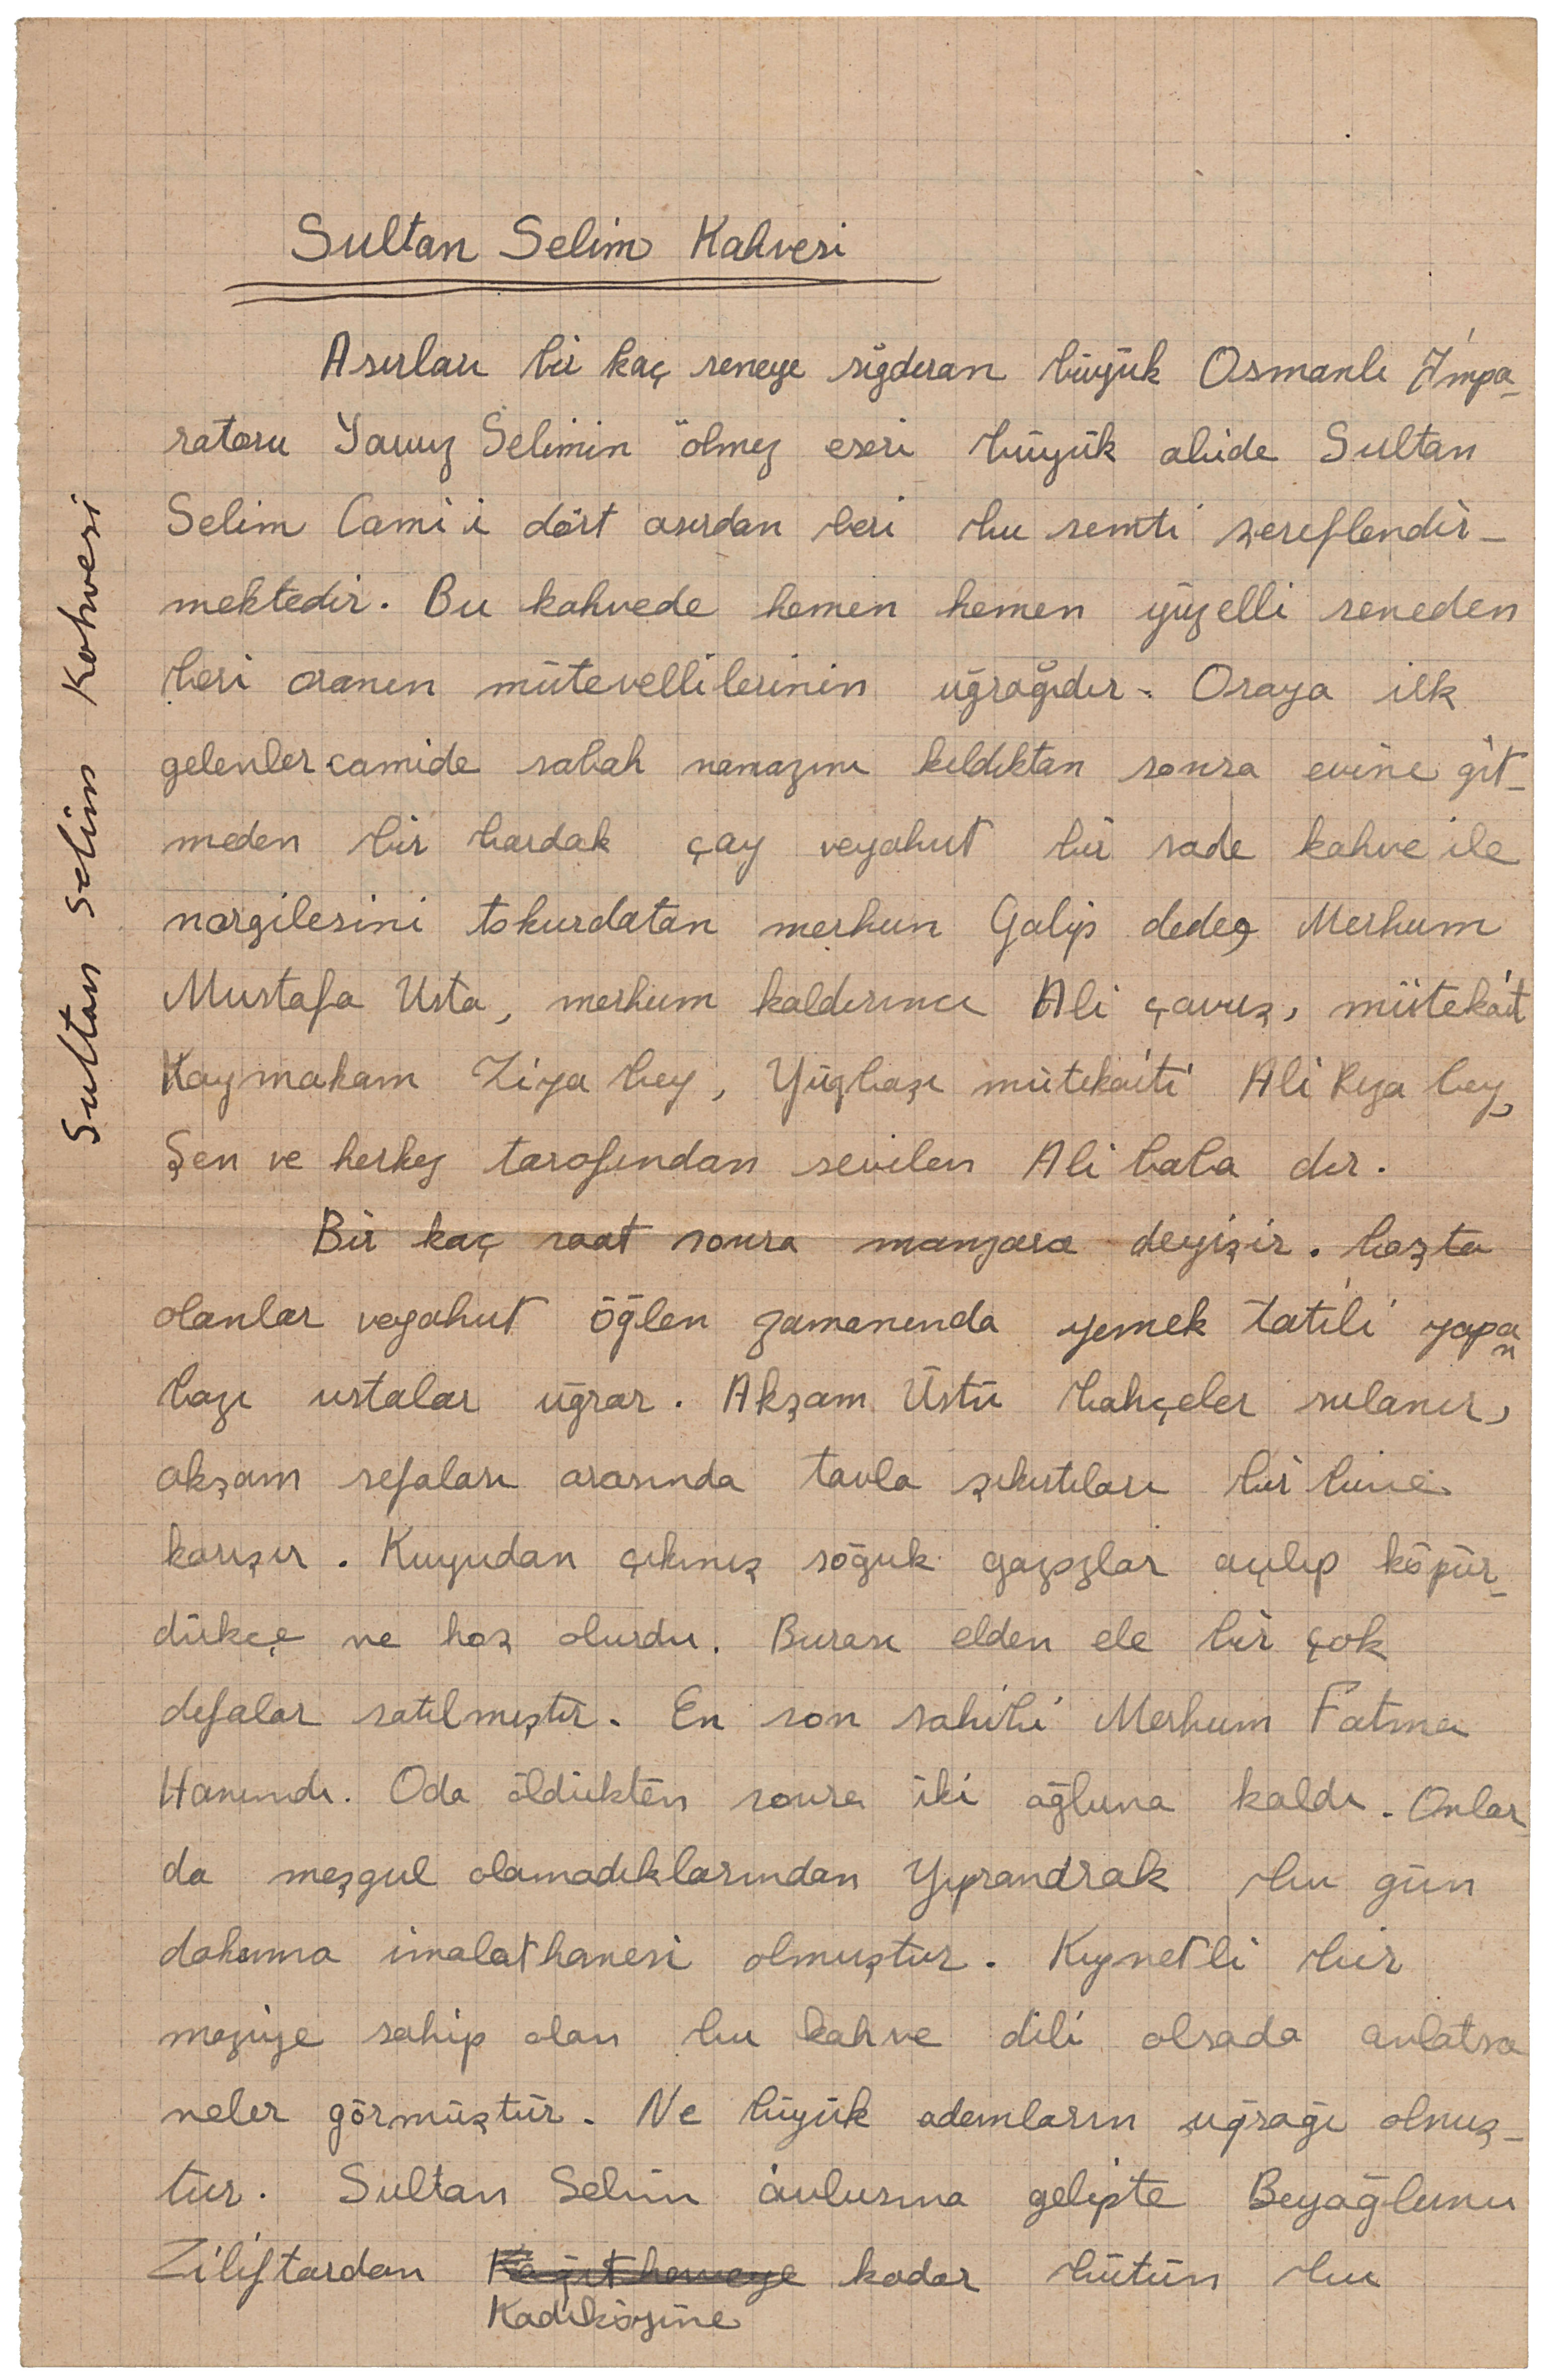 Sultan Selim Kahvesi
Sultan Selim Kahvesi
Asırları bir kaç seneye sığdıran büyük Osmanlı İmpa-
ratoru Yavuz Selimin ölmez eseri büyük abide Sultan
Selim Cami i dört asırdan beri bu semti şereflendir-
mektedir. Bu kahvede hemen hemen yüzelli seneden
beri oranın mütevellilerinin uğrağıdır. Oraya ilk
gelenler camide sabah namazını kıldıktan sonra evine git-
meden bir bardak çay veyahut bir sade kahve ile
nargilesini tokurdatan merhun Galip dede, Merhum
Mustafa Usta, merhum kaldırımcı Ali çavuş, mütekait
Kaymakam Ziya bey, Yüzbaşı mütekaiti Ali Rıza bey,
Şen ve herkez tarafından sevilen Ali baba dır.
Bir kaç saat sonra manzara deyişir. boşta
olanlar veyahut öğlen zamanında yemek tatili yapan
bazı ustalar uğrar. Akşam Üstü bahçeler sulanır,
akşam sefaları arasında tavla şıkırtıları bir birine
karışır. Kuyudan çıkmış soğuk gazozlar açılıp köpür-
dükçe ne hoş olurdu. Burası elden ele bir çok
defalar satılmıştır. En son sahibi Merhum Fatma
Hanımdı. Oda öldükten sonra iki oğluna kaldı. Onlar
da meşgul olamadıklarından Yıprandrak bu gün
dokuma imalathanesi olmuştur. Kıymetli bir
maziye sahip olan bu kahve dili olsada anlatsa
neler görmüştür. Ne büyük adamların uğrağı olmuş-
tur. Sultan Selim avlusına gelipte Beyoğlunu
Ziliftardan Kağıthaneye kadar bütün bu
Kadıköyüne